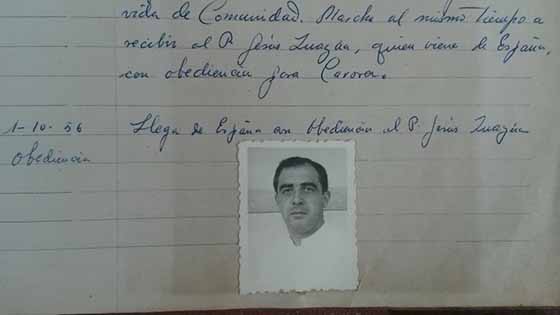 vida de Comunidad. Marcha al mismo tiempo a
recibir al P. Jesús Tuazón, quien viene de España,
con obediencia para Carora.
1-10-56 Llega de España con Obediencia el P. Jesús
Obediencia